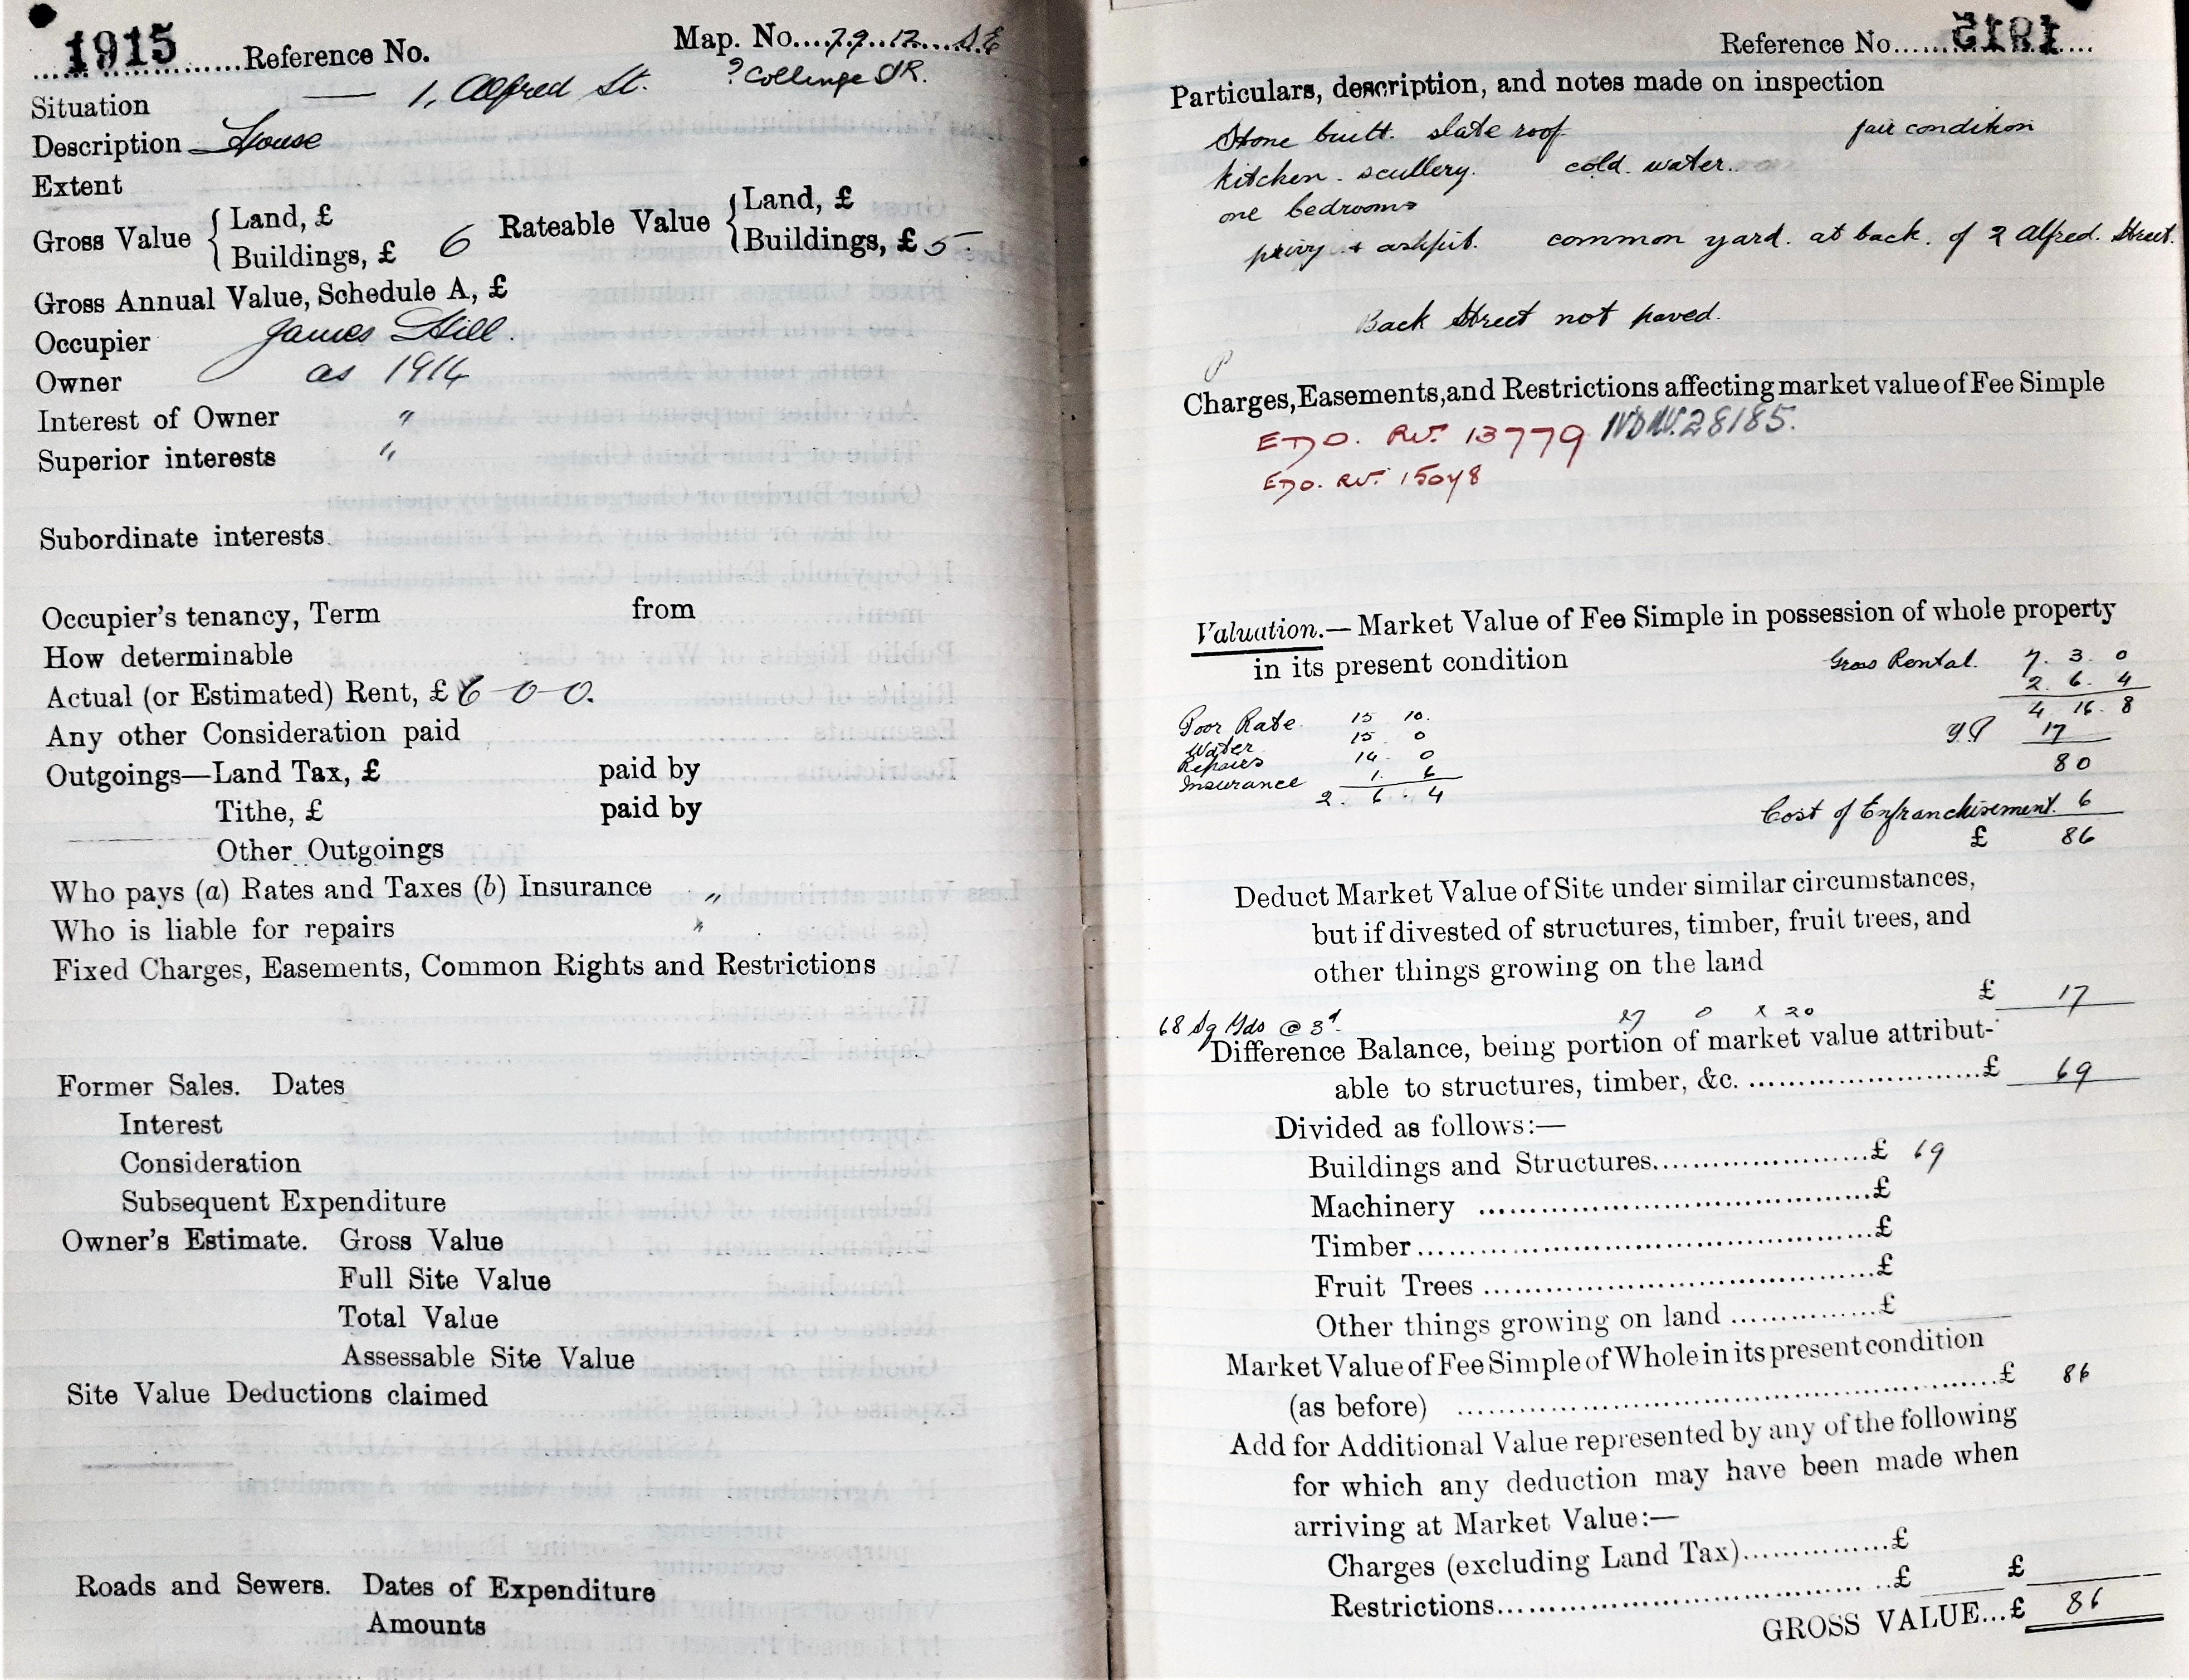 1915 Reference No. Map. No. 79.12. S.E
? Collinge St R.
Situation — 1, Alfred St.
Description House
Extent
Gross Value { Land, £
Buildings, £ 6
Rateable Value { Land, £
Buildings, £ 5
Gross Annual Value, Schedule A, £
Occupier James Hill.
Owner as 1914
Interest of Owner "
Superior interests "
Subordinate interests
Occupier's tenancy, Term from
How determinable
Actual (or Estimated) Rent, £ 6-0-0.
Any other Consideration paid
Outgoings—Land Tax, £ paid by
Tithe, £ paid by
Other Outgoings
Who pays (a) Rates and Taxes (b) Insurance "
Who is liable for repairs "
Fixed Charges, Easements, Common Rights and Restrictions
Former Sales. Dates
Interest
Consideration
Subsequent Expenditure
Owner's Estimate. Gross Value
Full Site Value
Total Value
Assessable Site Value
Site Value Deductions claimed
Roads and Sewers. Dates of Expenditure
Amounts
Reference No. 1915
Particulars, description, and notes made on inspection
Stone built. slate roof fair condition
kitchen. scullery. cold. water.
one bedrooms
privy & ashpit. common yard. at back. of 2 Alfred. Street.
Back Street not paved.
Charges, Easements, and Restrictions affecting market value of Fee Simple
13779 28185.
Valuation.—Market Value of Fee Simple in possession of whole property
in its present condition Gross Rental. 7. 3. 0
2. 6. 4
4. 16. 8
Poor Rate 15 10.
Water 15 0
Repairs 14 0
Insurance 1. 6
2. 6. 4
YP 17
80
Cost of Enfranchisement. 6
£ 86
Deduct Market Value of Site under similar circumstances,
but if divested of structures, timber, fruit trees, and
other things growing on the land
£ 17
68 Sq Yds @ 3d. x 20
Difference Balance, being portion of market value attribut-
able to structures, timber, &c. £ 69
Divided as follows:—
Buildings and Structures £ 69
Machinery £
Timber £
Fruit Trees £
Other things growing on land £
Market Value of Fee Simple of Whole in its present condition
(as before) £ 86
Add for Additional Value represented by any of the following
for which any deduction may have been made when
arriving at Market Value:—
Charges (excluding Land Tax) £
Restrictions £ £
GROSS VALUE...£ 86